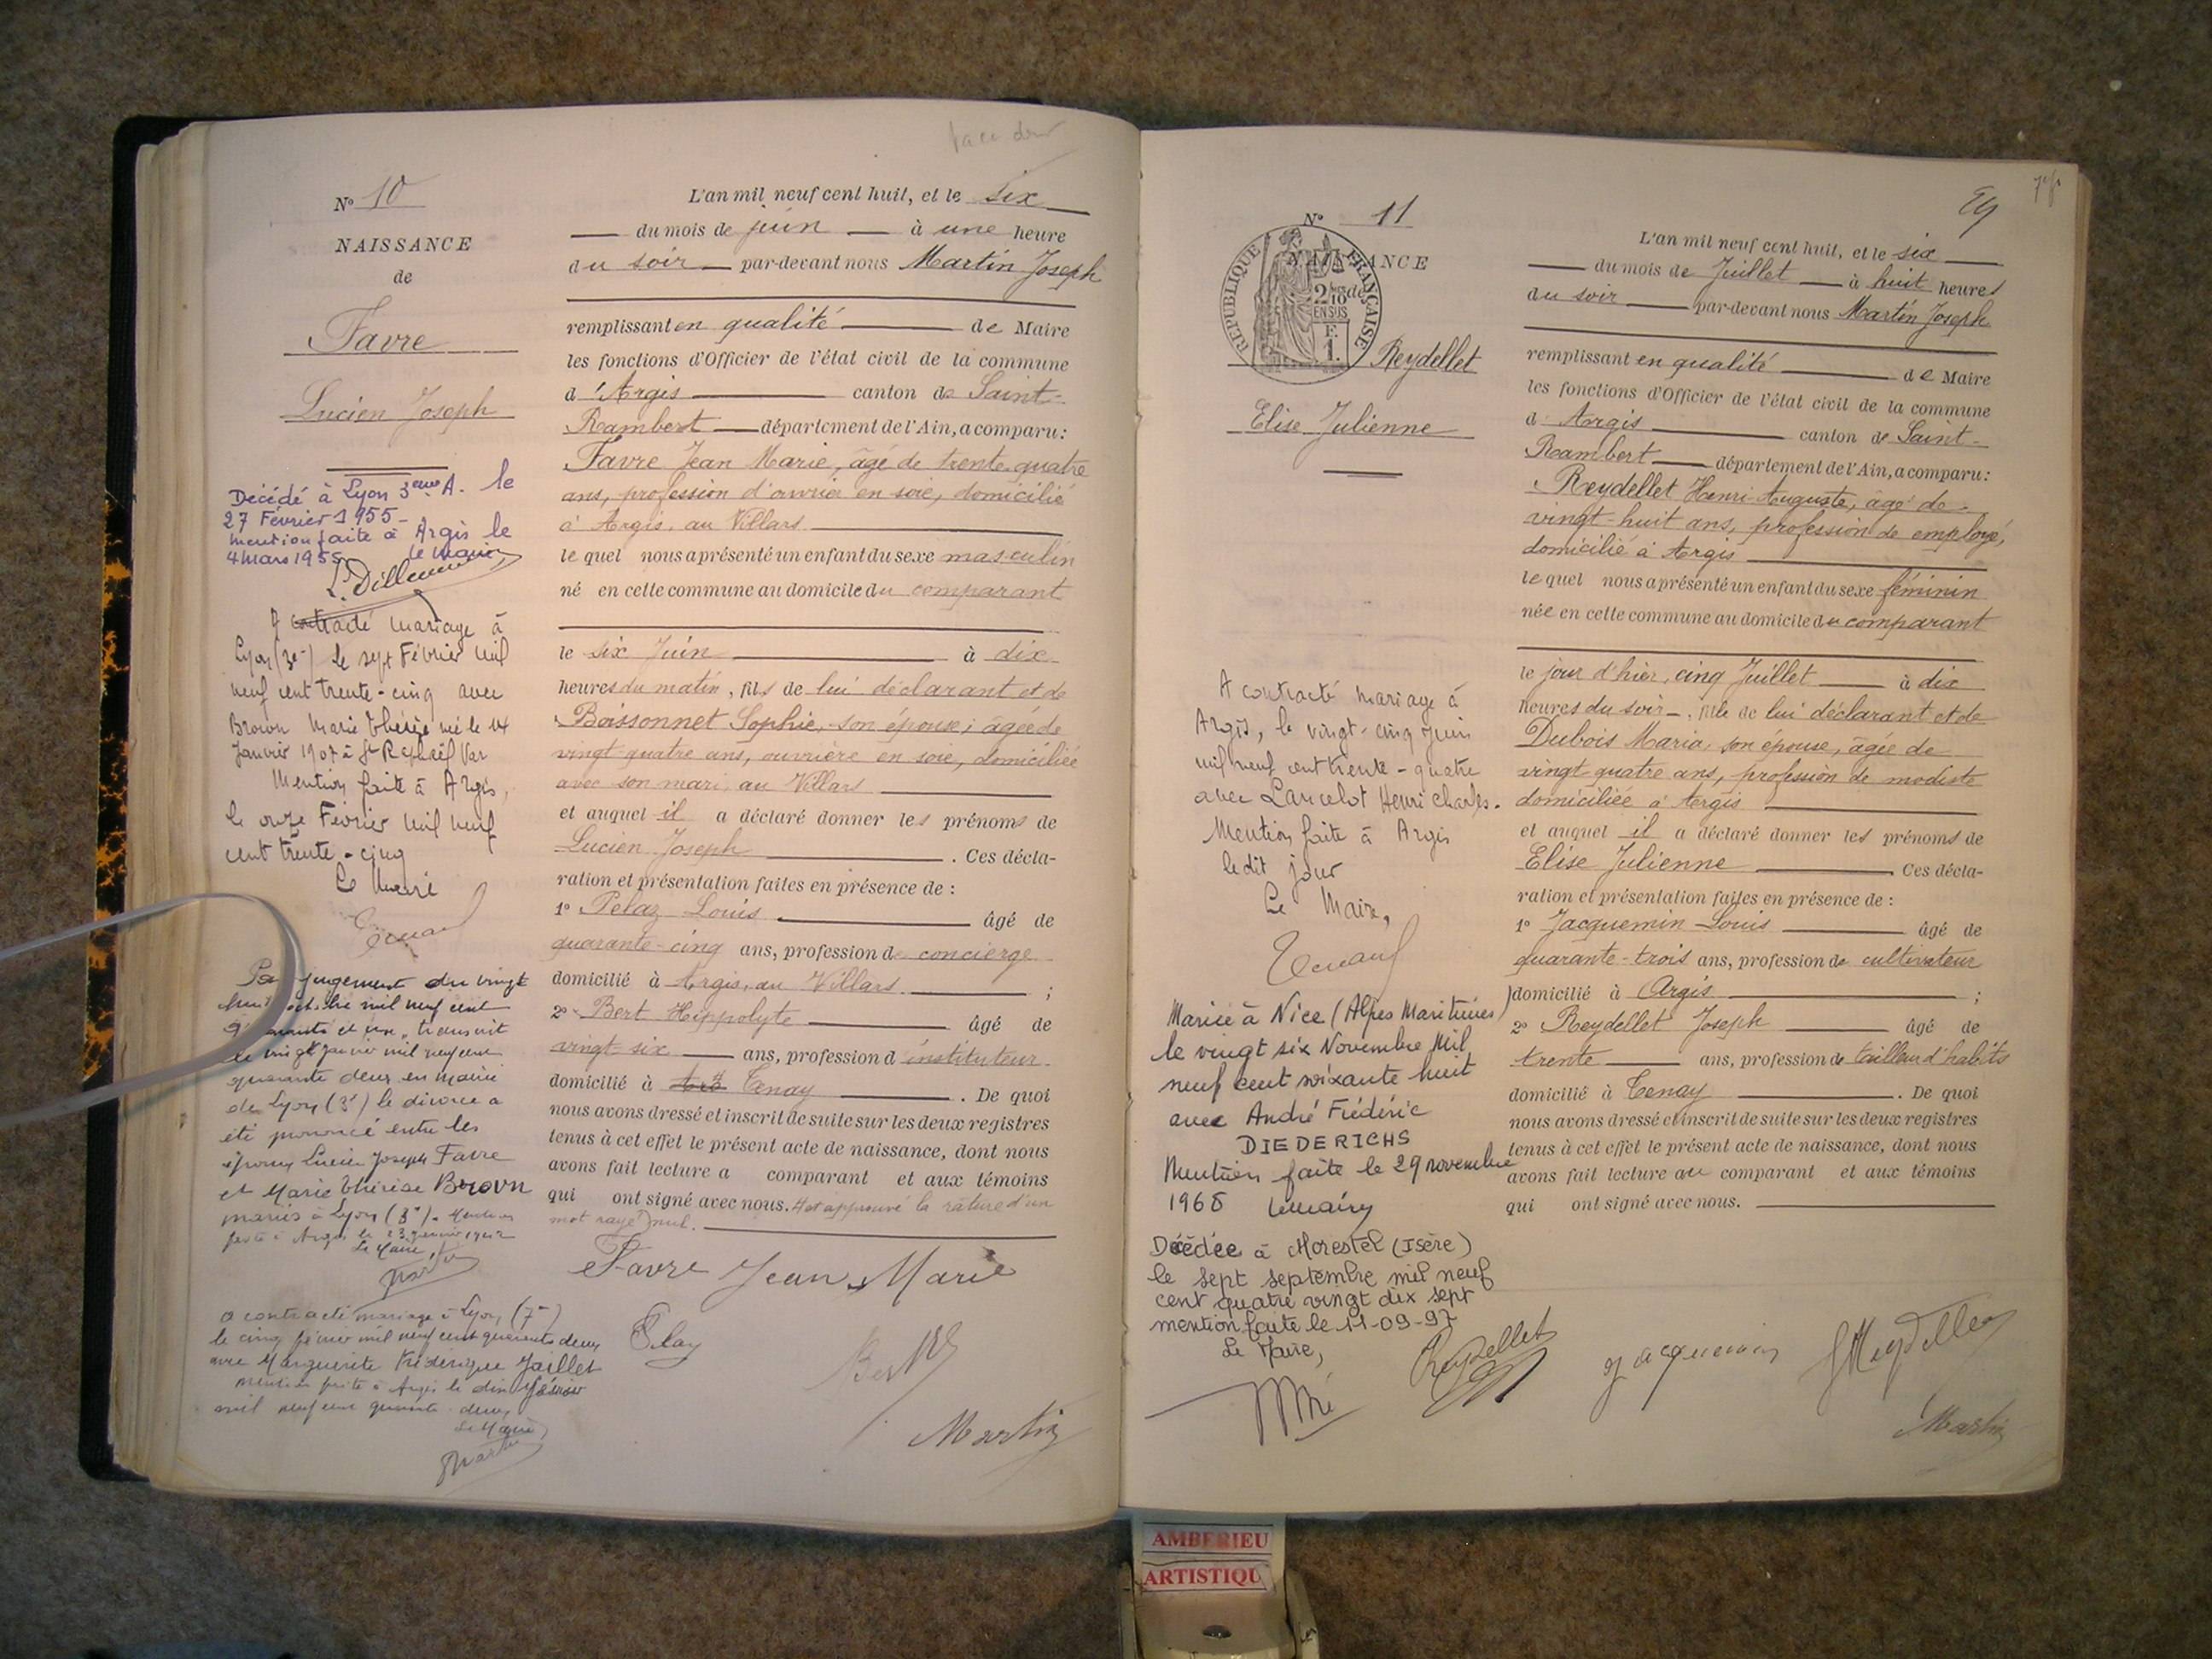 N° 10
NAISSANCE
de
Favre
Lucien Joseph
Décédé à Lyon 3eme A. le
27 Février 1955-
mention faite à Argis le
4 Mars 1955 le Maire
A contracté mariage à
Lyon (3e) le sept Février mil
neuf cent trente-cinq avec
Brown Marie Thérèse née le 14
Janvier 1907 à St Raphaël Var
Mention faite à Argis,
le onze Février mil neuf
cent trente-cinq
Le Maire
Par jugement du vingt
huit octobre mil neuf cent
quarante et un, transcrit
le vingt janvier mil neuf cent
quarante deux en mairie
de Lyon (3e) le divorce a
été prononcé entre les
époux Lucien Joseph Favre
et Marie Thérèse Brown
mariés à Lyon (3e). Mention
faite à Argis le 23 janvier 1942
Le Maire,
Martin
a contracté mariage à Lyon (7e)
le cinq février mil neuf cent quarante deux
avec Marguerite Frédérique Jaillet
mention faite à Argis le dix février
mil neuf cent quarante deux
Le Maire,
Martin
L'an mil neuf cent huit, et le six
du mois de juin à une heure
du soir par-devant nous Martin Joseph
remplissant en qualité de Maire
les fonctions d'Officier de l'état civil de la commune
d'Argis canton de Saint-
Rambert département de l'Ain, a comparu:
Favre Jean Marie, âgé de trente-quatre
ans, profession d'ouvrier en soie, domicilié
à Argis, au Villars
le quel nous a présenté un enfant du sexe masculin
né en cette commune au domicile du comparant
le six Juin à dix
heures du matin, fils de lui déclarant et de
Boissonnet Sophie, son épouse, âgée de
vingt-quatre ans, ouvrière en soie, domiciliée
avec son mari, au Villars
et auquel il a déclaré donner les prénoms de
Lucien Joseph. Ces décla-
ration et présentation faites en présence de :
1° Pelaz Louis âgé de
quarante-cinq ans, profession de concierge
domicilié à Argis, au Villars ;
2° Bert Hippolyte âgé de
vingt-six ans, profession d'instituteur
domicilié à Tenay. De quoi
nous avons dressé et inscrit de suite sur les deux registres
tenus à cet effet le présent acte de naissance, dont nous
avons fait lecture a comparant et aux témoins
qui ont signé avec nous. Est approuvé la rature d'un
mot rayé nul.
Favre Jean Marie
Pelaz
Bert
Martin
N° 11
NAISSANCE
de
RÉPUBLIQUE FRANÇAISE
2/10
EN SUS
F.
1.
Reydellet
Elise Julienne
A contracté mariage à
Argis, le vingt-cinq Juin
mil neuf cent trente-quatre
avec Lancelot Henri Charles.
Mention faite à Argis
ledit jour
Le Maire,
Mariée à Nice (Alpes Maritimes)
le vingt six Novembre Mil
neuf cent soixante huit
avec André Frédéric
DIEDERICHS
Mention faite le 29 novembre
1968 Le Maire
Décédée à Morestel (Isère)
le sept septembre mil neuf
cent quatre vingt dix sept
mention faite le 11-09-97
Le Maire,
L'an mil neuf cent huit, et le six
du mois de Juillet à huit heures
du soir par-devant nous Martin Joseph
remplissant en qualité de Maire
les fonctions d'Officier de l'état civil de la commune
d'Argis canton de Saint-
Rambert département de l'Ain, a comparu:
Reydellet Henri Auguste, âgé de
vingt-huit ans, profession de employé,
domicilié à Argis
le quel nous a présenté un enfant du sexe féminin
née en cette commune au domicile du comparant
le jour d'hier, cinq Juillet à dix
heures du soir, fille de lui déclarant et de
Dubois Maria, son épouse, âgée de
vingt-quatre ans, profession de modiste
domiciliée à Argis
et auquel il a déclaré donner les prénoms de
Elise Julienne Ces décla-
ration et présentation faites en présence de :
1° Jacquemin Louis âgé de
quarante-trois ans, profession de cultivateur
domicilié à Argis ;
2° Reydellet Joseph âgé de
trente ans, profession de tailleur d'habits
domicilié à Tenay. De quoi
nous avons dressé et inscrit de suite sur les deux registres
tenus à cet effet le présent acte de naissance, dont nous
avons fait lecture au comparant et aux témoins
qui ont signé avec nous.
Reydellet
Jacquemin
J Reydellet
Martin
AMBERIEU
ARTISTIQU